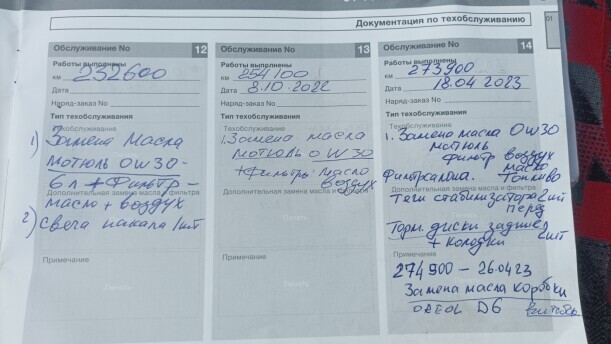 Документация по техобслуживанию
01
Обслуживание No 12
Работы выполнены
км 232600
Дата
Наряд-заказ No
Тип техобслуживания
Техобслуживание
1) Замена масла
мотюль 0W30 -
6л + Фильтр -
Дополнительная замена масла и фильтра
масло + воздух
2) свеча накала 1шт
Печать
Примечание
Печать
Обслуживание No 13
Работы выполнены
км 254100
Дата 8.10.2022
Наряд-заказ No
Тип техобслуживания
Техобслуживание
1. Замена масла
мотюль 0W30
+ Фильтр: масло
воздух
Дополнительная замена масла и фильтра
Печать
Примечание
Печать
Обслуживание No 14
Работы выполнены
км 273900
Дата 18.04 2023
Наряд-заказ No
Тип техобслуживания
Техобслуживание
1. Замена масла 0W30
мотюль
фильтр воздух
масло
Топливо
Дополнительная замена масла и фильтра
тяги стабилизатора 2шт
перед
Торм. диски задние
+ колодки 2шт
Примечание
274900 - 26.04.23
Замена масла коробки
OREOL D6